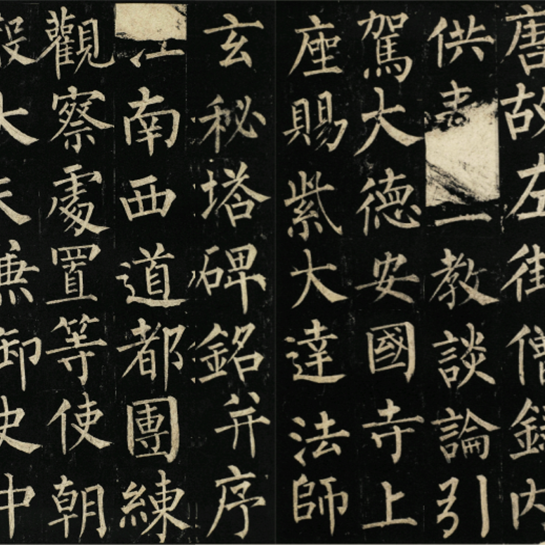 唐故左街僧錄內
供教談論引
駕大德安國寺上
座賜紫大達法師
玄秘塔碑銘并序
南西道都團練
觀察處置等使朝
大夫兼御史中